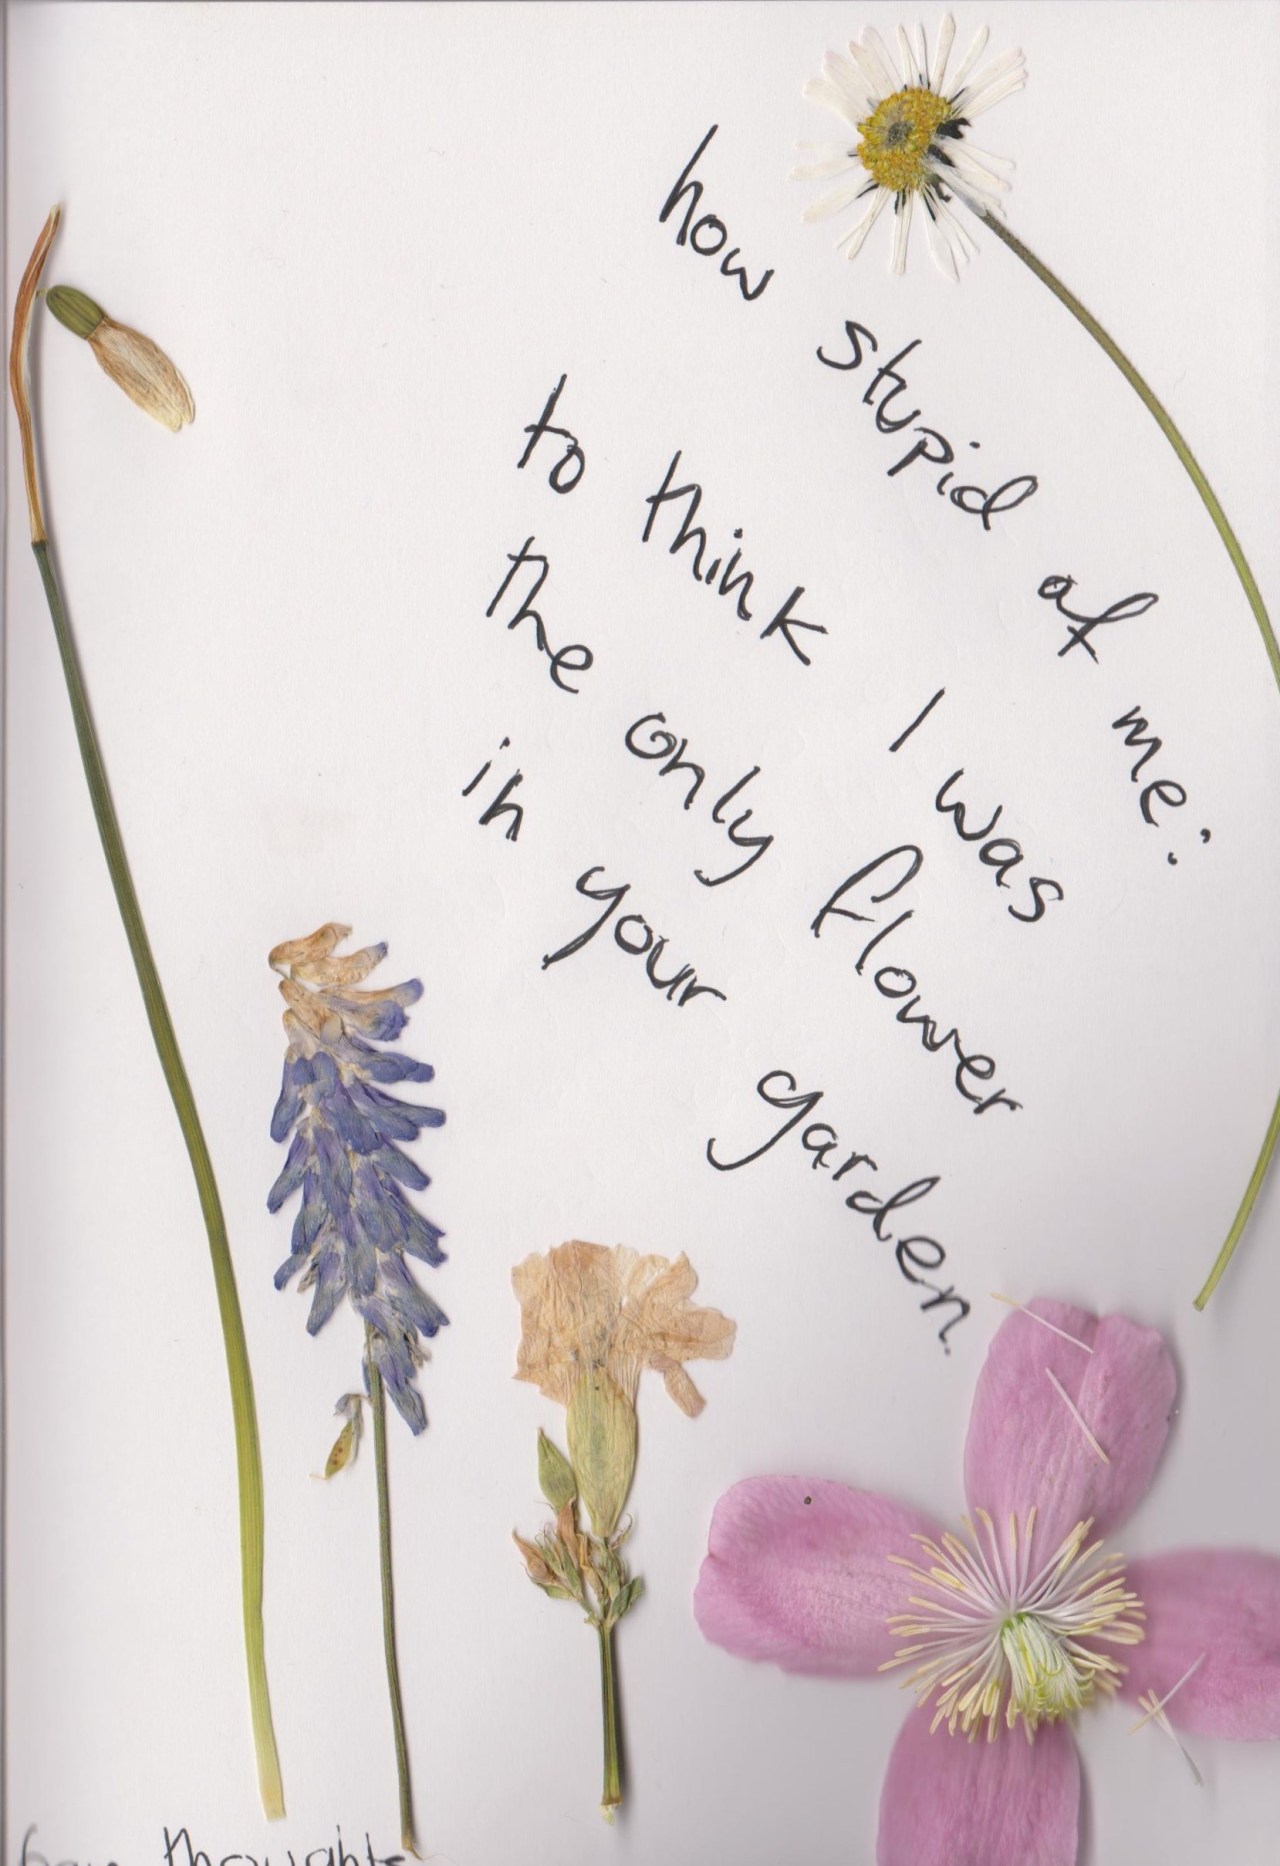 how stupid of me:
to think I was
the only flower
in your garden.
thoughts